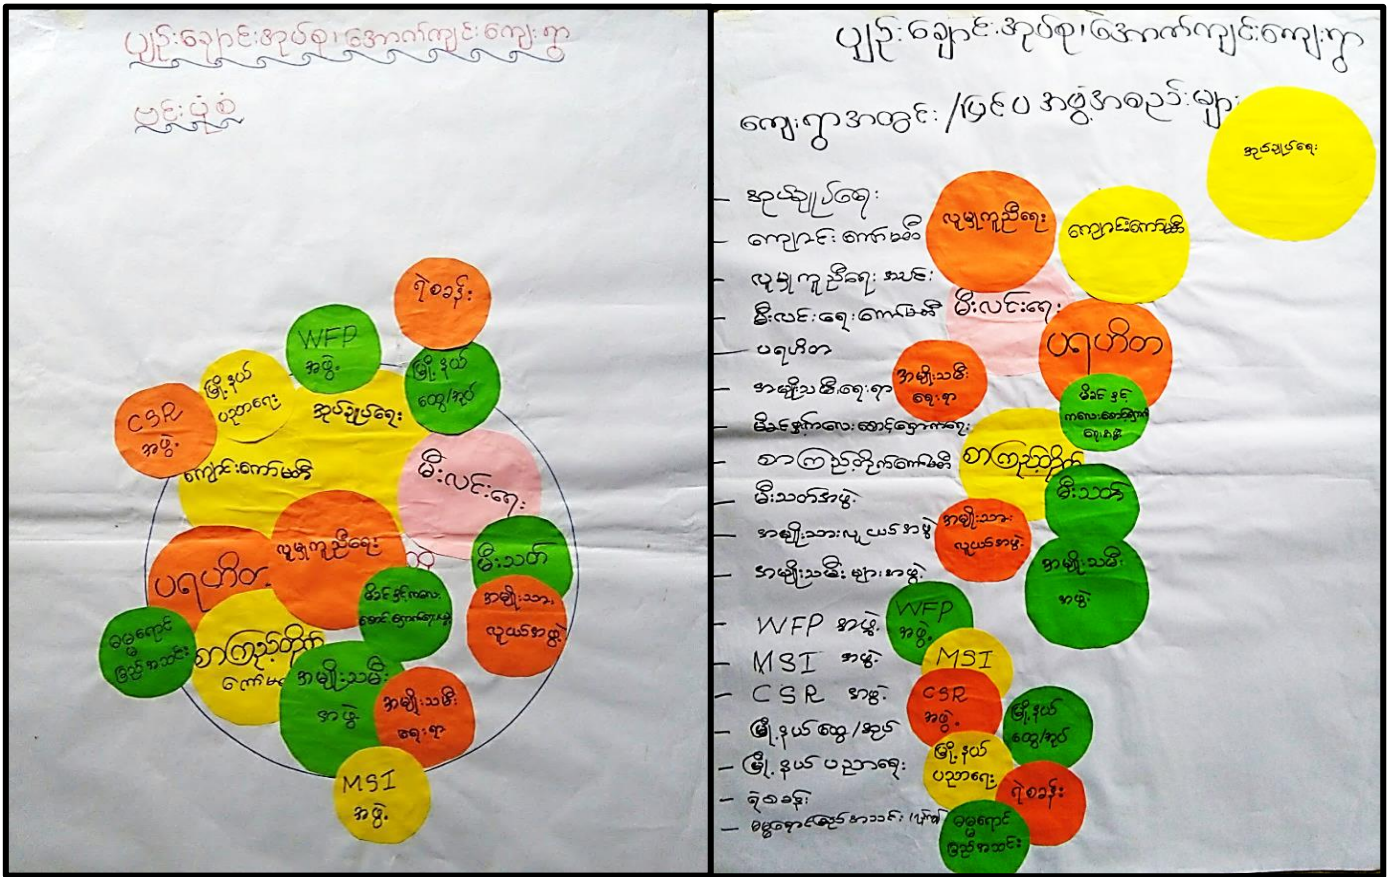 ပျဉ်းချောင်းအုပ်စု၊အောက်ကျင်းကျေးရွာ
ဗင်းပုံစံ
ရဲစခန်း
WFP
အဖွဲ့
မြို့နယ်
ထွေ/အုပ်
မြို့နယ်
ပညာရေး
အုပ်ချုပ်ရေး
CSR
အဖွဲ့
ကျောင်းကော်မတီ
မီးလင်းရေး
လူမှုကူညီရေး
မီးသတ်
ပရဟိတ
မိခင်နှင့်ကလေး
အမျိုးသား
လူငယ်အဖွဲ့
ဓမ္မရောင်
ခြည်အသင်း
စာကြည့်တိုက်
အမျိုးသမီး
အဖွဲ့
အမျိုးသမီး
ရေးရာ
MSI
အဖွဲ့
ပျဉ်းချောင်းအုပ်စု၊အောက်ကျင်းကျေးရွာ
ကျေးရွာအတွင်း/ပြင်ပ အဖွဲ့အစည်းများ
အုပ်ချုပ်ရေး
– အုပ်ချုပ်ရေး
– ကျောင်းကော်မတီ
– လူမှုကူညီရေးအသင်း
– မီးလင်းရေးကော်မတီ
– ပရဟိတ
– အမျိုးသမီးရေးရာ
– မိခင်နှင့်ကလေးစောင့်ရှောက်ရေး
– စာကြည့်တိုက်ကော်မတီ
– မီးသတ်အဖွဲ့
– အမျိုးသားလူငယ်အဖွဲ့
– အမျိုးသမီးများအဖွဲ့
– WFP အဖွဲ့
– MSI အဖွဲ့
– CSR အဖွဲ့
– မြို့နယ်ထွေ/အုပ်
– မြို့နယ်ပညာရေး
– ရဲစခန်း
– ဓမ္မရောင်ခြည်အသင်း
လူမှုကူညီရေး
ကျောင်းကော်မတီ
မီးလင်းရေး
ပရဟိတ
အမျိုးသမီး
ရေးရာ
မိခင်နှင့်
ကလေးစောင့်ရှောက်
စာကြည့်တိုက်
မီးသတ်
အမျိုးသား
လူငယ်အဖွဲ့
အမျိုးသမီး
အဖွဲ့
WFP
အဖွဲ့
MSI
CSR
အဖွဲ့
မြို့နယ်
ထွေ/အုပ်
မြို့နယ်
ပညာရေး
ရဲစခန်း
ဓမ္မရောင်
ခြည်အသင်း